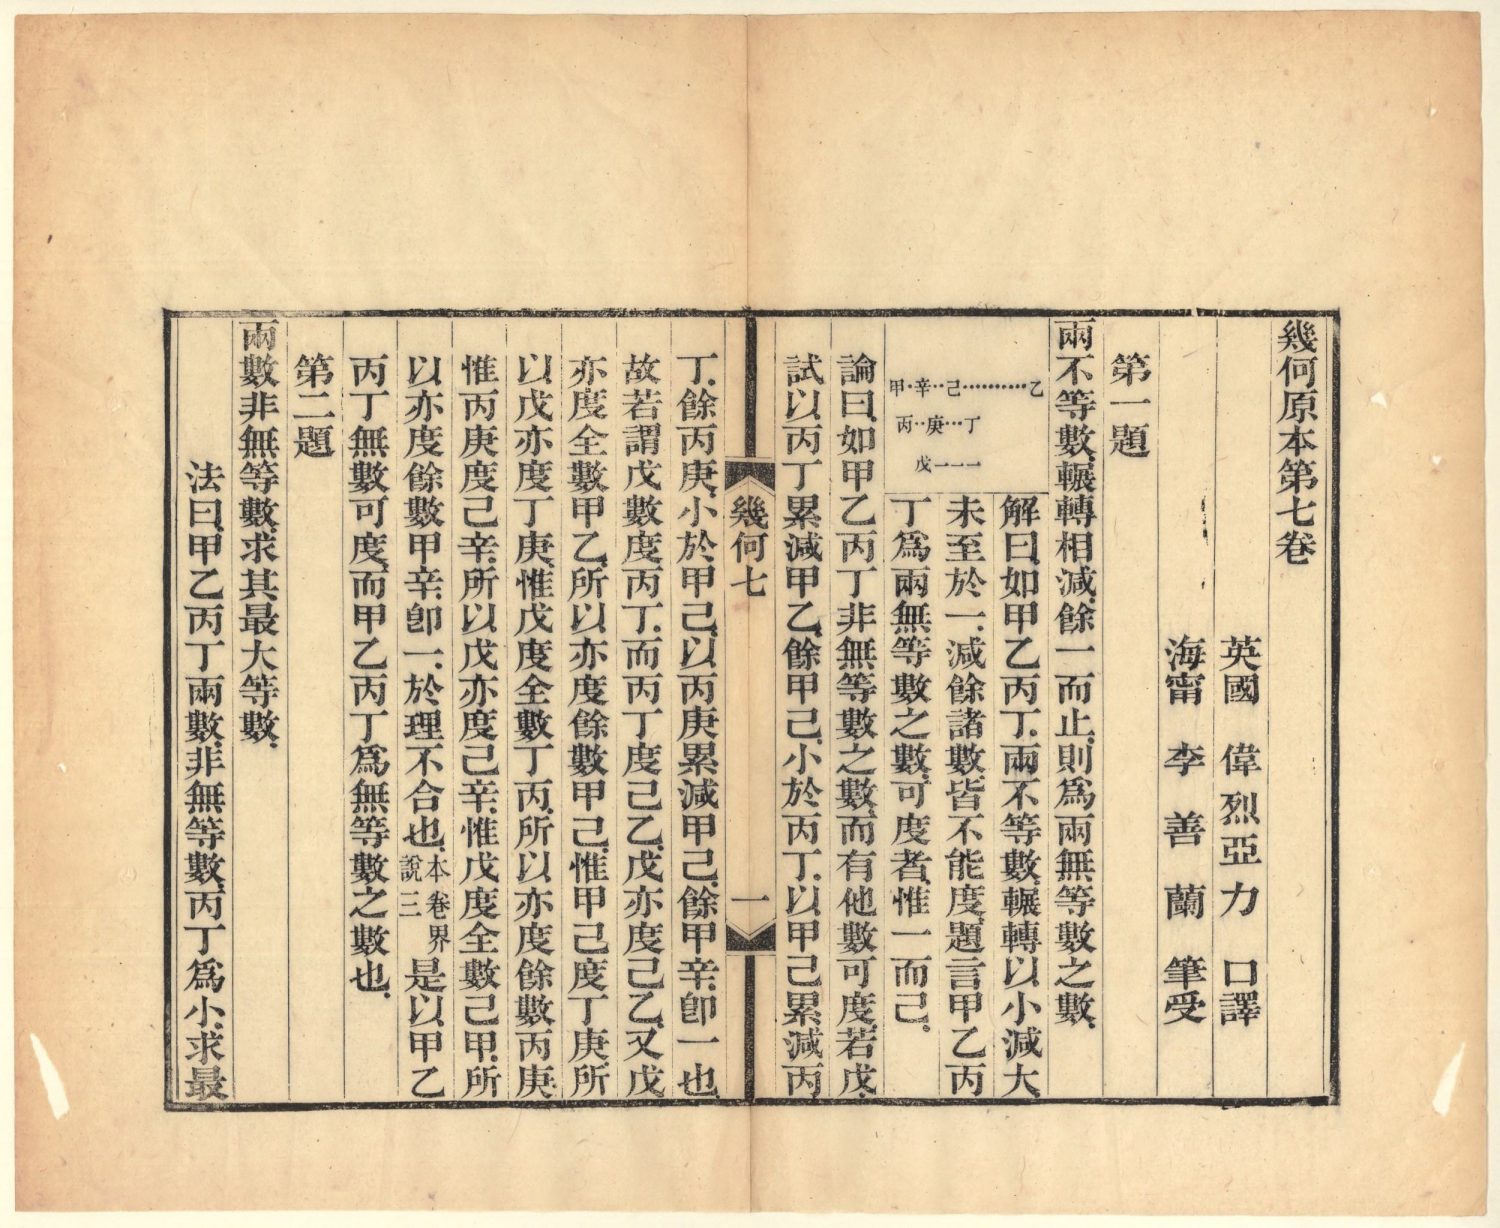 幾何原本第七卷
英國 偉烈亞力 口譯
海甯 李善蘭 筆受
第一題
兩不等數、輾轉相減、餘一而止、則爲兩無等數之數、
甲·辛··己···········乙
丙··庚···丁
戊一一一
解曰、如甲乙丙丁、兩不等數、輾轉以小減大、
未至於一、減餘諸數、皆不能度、題言甲乙丙
丁爲兩無等數之數、可度者、惟一而已、
論曰、如甲乙丙丁非無等數之數、而有他數可度、若戊、
試以丙丁累減甲乙、餘甲己、小於丙丁、以甲己累減丙
幾何七
一
丁、餘丙庚、小於甲己、以丙庚累減甲己、餘甲辛、卽一也、
故若謂戊數度丙丁、而丙丁度己乙、戊亦度己乙、又戊
亦度全數甲乙、所以亦度餘數甲己、惟甲己度丁庚、所
以戊亦度丁庚、惟戊度全數丁丙、所以亦度餘數丙庚、
惟丙庚度己辛、所以戊亦度己辛、惟戊度全數己甲、所
以亦度餘數甲辛、卽一、於理不合也、本卷界說三是以甲乙
丙丁無數可度、而甲乙丙丁爲無等數之數也、
第二題
兩數非無等數、求其最大等數、
法曰、甲乙丙丁兩數、非無等數、丙丁爲小、求最